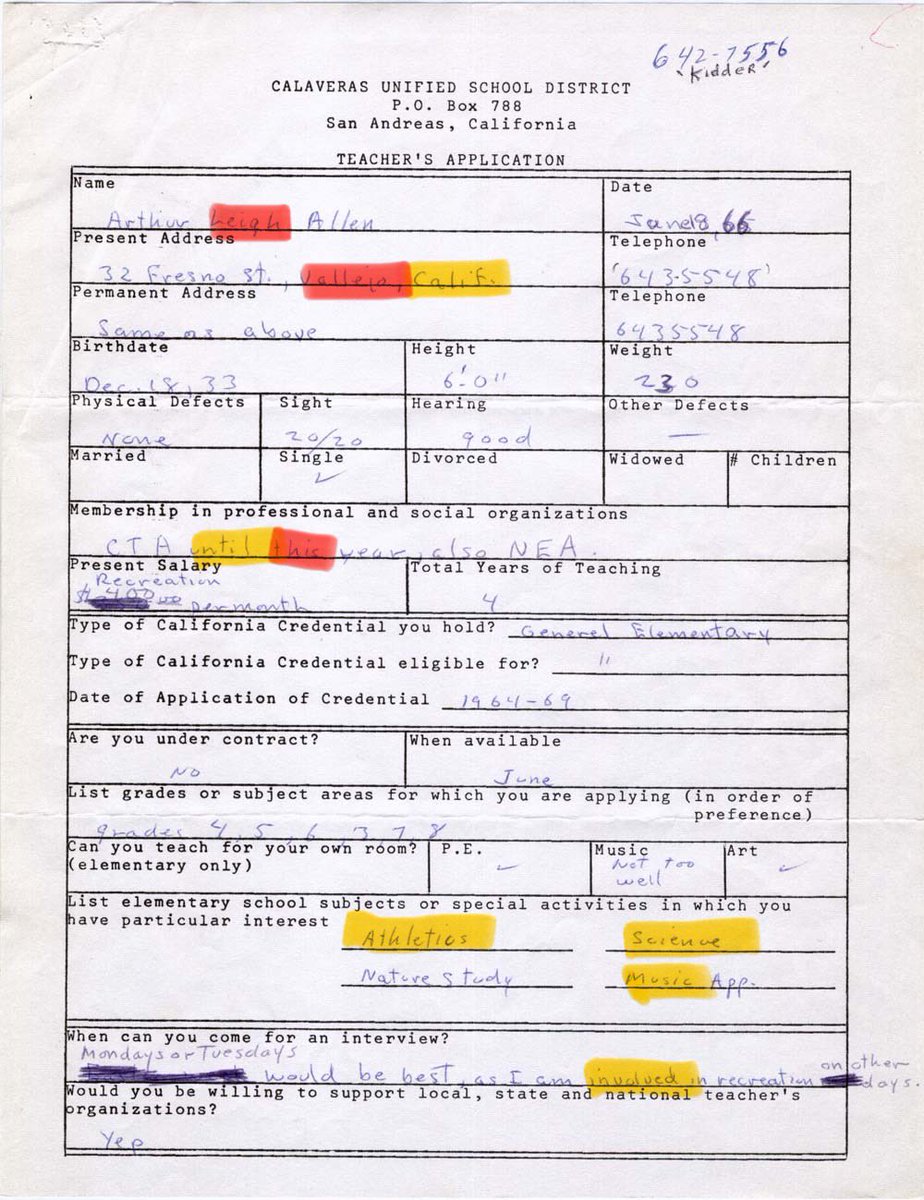 642-7556
"Kidder"
CALAVERAS UNIFIED SCHOOL DISTRICT
P.O. Box 788
San Andreas, California
TEACHER'S APPLICATION
Name
Date
Arthur Leigh Allen
June 8, 66
Present Address
Telephone
32 Fresno St., Vallejo, Calif.
'643-5548'
Permanent Address
Telephone
Same as above
6435548
Birthdate
Height
Weight
Dec. 18, 33
6'-0"
230
Physical Defects
Sight
Hearing
Other Defects
None
20/20
good
—
Married
Single
Divorced
Widowed
# Children
✓
Membership in professional and social organizations
CTA until this year, also NEA.
Present Salary
Total Years of Teaching
Recreation
per month
4
Type of California Credential you hold? General Elementary
Type of California Credential eligible for? "
Date of Application of Credential 1964-69
Are you under contract?
When available
No
June
List grades or subject areas for which you are applying (in order of
preference)
grades 4, 5, 6, 3, 7, 8
Can you teach for your own room?
(elementary only)
P.E.
✓
Music
Not too
well
Art
✓
List elementary school subjects or special activities in which you
have particular interest
Athletics
Science
Nature Study
Music App.
When can you come for an interview?
Mondays or Tuesdays
would be best, as I am involved in recreation on other
days.
Would you be willing to support local, state and national teacher's
organizations?
Yep